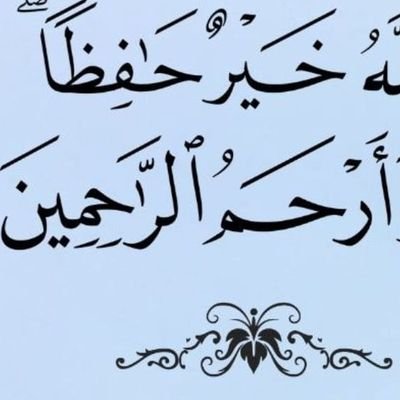 خَيْرٌ حَـٰفِظًا ۖ
أَرْحَمُ ٱلرَّٰحِمِينَ